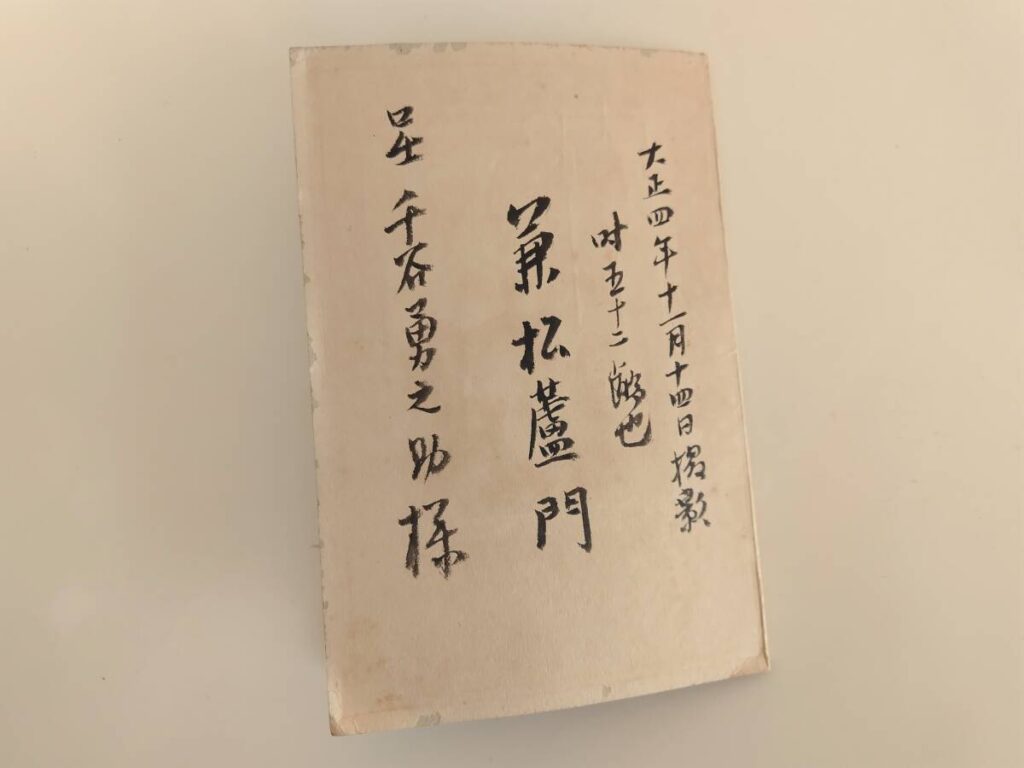 大正四年十一月十四日撮影
时五十二歳也
兼松蘆門
呈千谷勇之助様